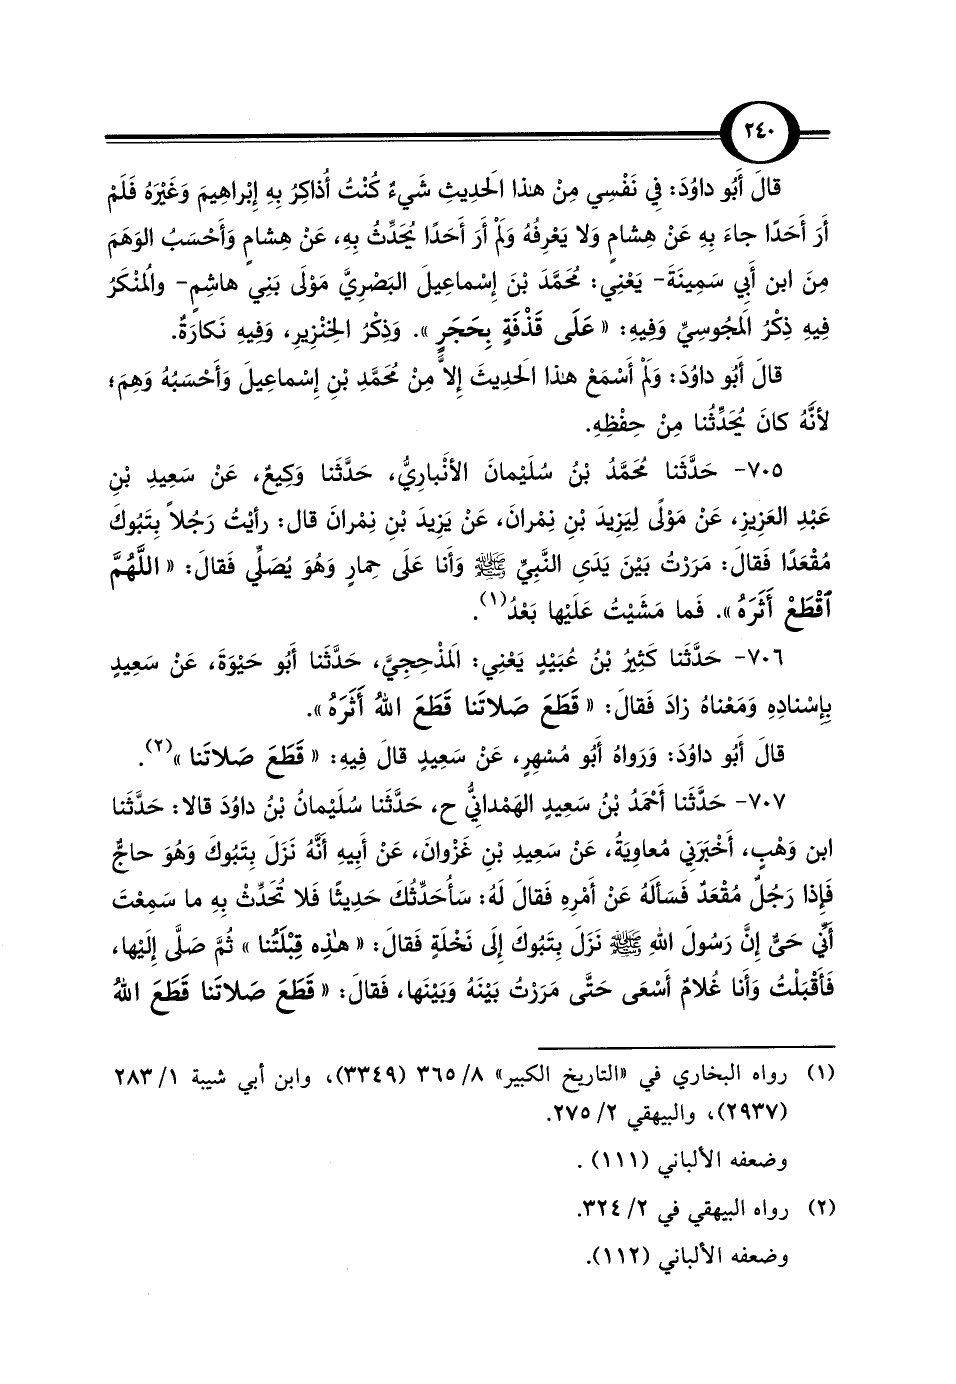 ٢٤٠
قالَ أَبُو داوُدَ: فِي نَفْسِي مِنْ هٰذا الَحدِيثِ شَيءٌ كُنْتُ أُذاكِرُ بِهِ إِبْراهِيمَ وَغَيْرَهُ فَلَمْ
أَرَ أَحَدًا جاءَ بِهِ عَنْ هِشامٍ وَلا يَعْرِفُهُ وَلَمْ أَرَ أَحَدًا يُحَدِّثُ بِهِ، عَنْ هِشامٍ وَأَحْسَبُ الوَهَمَ
مِنَ ابن أَبِي سَمِينَةَ- يَعْنِي: مُحَمَّدَ بْنَ إِسْماعِيلَ البَصْرِيَّ مَوْلَى بَنِي هاشِمٍ- والُمنْكَرُ
فِيهِ ذِكْرُ الَمجُوسِيِّ وَفِيهِ: « عَلَى قَذْفَةٍ بِحَجَرٍ ». وَذِكْرُ الِخنْزِيرِ، وَفِيهِ نَكارَةٌ.
قالَ أَبُو داوُدَ: وَلَمْ أَسْمَعْ هٰذا الَحدِيثَ إِلاَّ مِنْ مُحَمَّدِ بْنِ إِسْماعِيلَ وَأَحْسَبُهُ وَهِمَ؛
لأَنَّهُ كانَ يُحَدِّثُنا مِنْ حِفْظِهِ.
٧٠٥- حَدَّثَنا مُحَمَّدُ بْنُ سُلَيْمانَ الأَنْبارِيُّ، حَدَّثَنا وَكِيعٌ، عَنْ سَعِيدِ بْنِ
عَبْدِ العَزِيزِ، عَنْ مَوْلًى لِيَزِيدَ بْنِ نِمْرانَ، عَنْ يَزِيدَ بْنِ نِمْرانَ قال: رأَيْتُ رَجُلاً بِتَبُوكَ
مُقْعَدًا فَقالَ: مَرَرْتُ بَيْنَ يَدَى النَّبِيِّ ﷺ وَأَنا عَلَى حِمارٍ وَهُوَ يُصَلِّي فَقالَ: « اللَّهُمَّ
ٱقْطَعْ أَثَرَهُ ». فَما مَشَيْتُ عَلَيْها بَعْدُ(١).
٧٠٦- حَدَّثَنا كَثِيرُ بْنُ عُبَيْدٍ يَعْنِي: الَمذْحِجِيَّ، حَدَّثَنا أَبُو حَيْوَةَ، عَنْ سَعِيدٍ
بِإِسْنادِهِ وَمَعْناهُ زادَ فَقالَ: « قَطَعَ صَلاتَنا قَطَعَ اللهُ أَثَرَهُ ».
قالَ أَبُو داوُدَ: وَرَواهُ أَبُو مُسْهِرٍ، عَنْ سَعِيدٍ قالَ فِيهِ: « قَطَعَ صَلاتَنا »(٢).
٧٠٧- حَدَّثَنا أَحْمَدُ بْنُ سَعِيدٍ الهَمْدانِيُّ ح، حَدَّثَنا سُلَيْمانُ بْنُ داوُدَ قالا: حَدَّثَنا
ابن وَهْبٍ، أَخْبَرَنِي مُعاوِيَةُ، عَنْ سَعِيدِ بْنِ غَزْوانَ، عَنْ أَبِيهِ أَنَّهُ نَزَلَ بِتَبُوكَ وَهُوَ حاجٌّ
فَإِذا رَجُلٌ مُقْعَدٌ فَسَأَلَهُ عَنْ أَمْرِهِ فَقالَ لَهُ: سَأُحَدِّثُكَ حَدِيثًا فَلا تُحَدِّثْ بِهِ ما سَمِعْتَ
أَنِّي حَىٌّ إِنَّ رَسُولَ اللهِ ﷺ نَزَلَ بِتَبُوكَ إِلَى نَخْلَةٍ فَقالَ: « هٰذِه قِبْلَتُنا » ثُمَّ صَلَّى إِلَيْها،
فَأَقْبَلْتُ وَأَنا غُلامٌ أَسْعَى حَتَّى مَرَرْتُ بَيْنَهُ وَبَيْنَها، فَقالَ: « قَطَعَ صَلاتَنا قَطَعَ اللهُ
(١) رواه البخاري في «التاريخ الكبير» ٨/ ٣٦٥ (٣٣٤٩)، وابن أبي شيبة ١/ ٢٨٣
(٢٩٣٧)، والبيهقي ٢/ ٢٧٥.
وضعفه الألباني (١١١) .
(٢) رواه البيهقي في ٢/ ٣٢٤.
وضعفه الألباني (١١٢).